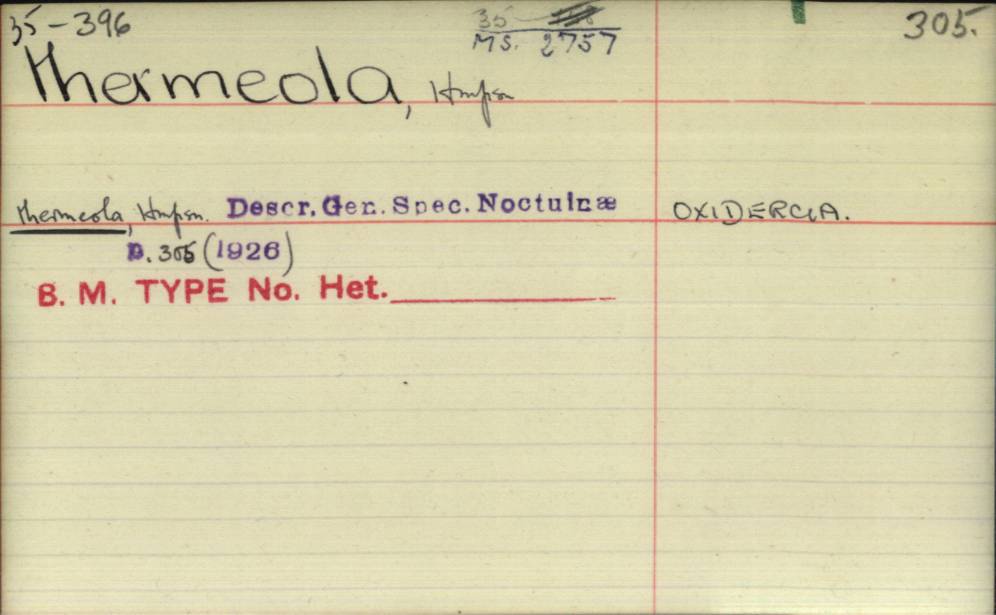 35-396
35
MS. 2757
305.
thermeola, Hmpsn
thermeola, Hmpsn. Descr. Gen. Spec. Noctuinæ
OXIDERCIA.
p. 305 (1926)
B. M. TYPE No. Het.